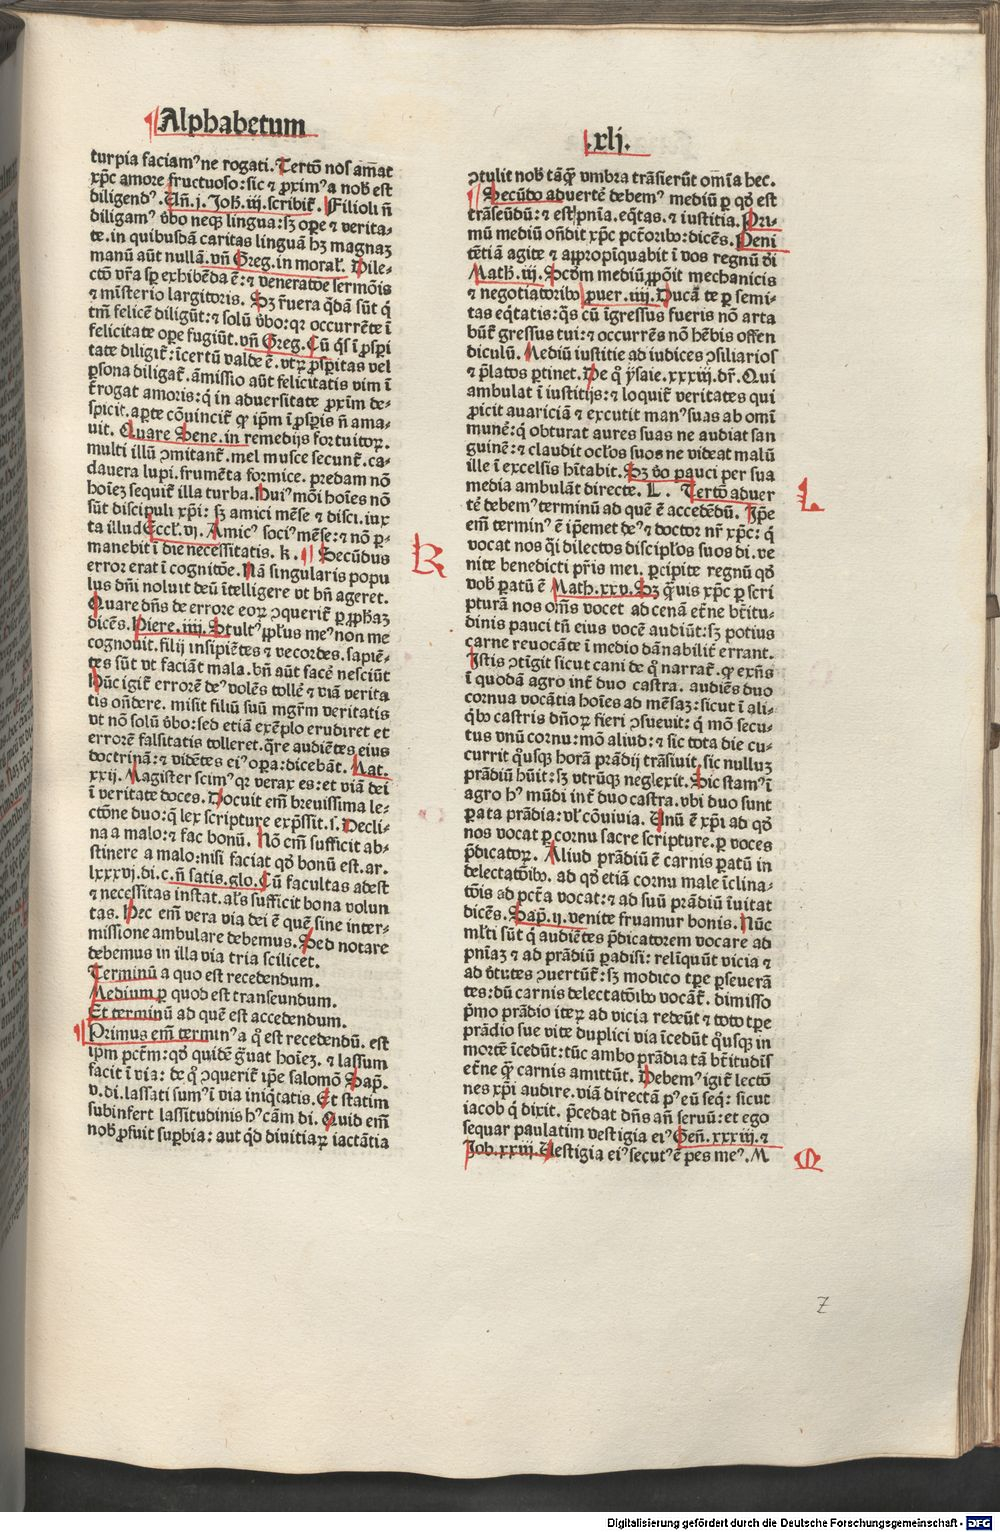 Alphabetum
.xlj.
turpia faciam⁹ ne rogati. Tertō nos am̄at
xp̄c amore fructuoso: sic ⁊ ꝓxim⁹ a nob̄ est
diligend⁹. Un̄. j. Joh. iij. scribit̄. Filioli n̄
diligam⁹ v̄bo neqꝫ lingua: sꝫ oꝑe ⁊ verita-
te. in quibusdā caritas linguā hꝫ magnaꝫ
manū aūt nullā. vn̄ Greg. in moral̄. Dile-
ctō vr̄a sꝑ exhibēda ē: ⁊ veneratōe sermōis
⁊ mīsterio largitoris. Sꝫ r̄uera q̄dā sūt q̄
tm̄ felicē diligūt: ⁊ solū v̄bo: qꝛ occurrēte ī
felicitate oꝑe fugiūt. vn̄ Greg. Cū q̄s ī ꝓsꝑi
tate diligit̄: īcertū valde ē. vtꝝ ꝓsꝑitas vel
ꝑsona diligat̄. āmissio aūt felicitatis vim ī
t̄rogat amoris: q̄ in aduersitate ꝓxīm de-
spicit. aꝑte cōuincit̄ ꝙ ip̄m ī ꝓsꝑis n̄ ama-
uit. Quare Sene. in remedijs fortuitoꝝ.
multi illū ꝯmitant̄. mel musce secunt̄. ca-
dauera lupi. frumēta formice. predam nō
hoīeꝫ sequit̄ illa turba. Hui⁹ mōi hoīes nō
sūt discipuli xp̄i: sꝫ amici mēse ⁊ disci. iux
ta illud Eccl̄. vj. Amic⁹ soci⁹ mēse: ⁊ nō ꝑ-
manebit ī die necessitatis. k. Secūdus
error erat ī cognitōe. Nā singularis popu
lus dn̄i noluit deū ītelligere vt bn̄ ageret.
Quare dn̄s de errore eoꝝ ꝯquerit̄ ꝑ ꝓph̄aꝫ
dicēs. Hiere. iiij. Stult⁹ ppl̄us me⁹ non me
cognouit. filij insipiētes ⁊ vecordes. sapiē-
tes sūt vt faciāt mala. bn̄ aūt facē nesciūt
Hūc igit̄ errorē de⁹ volēs tollē ⁊ viā verita
tis on̄dere. misit filiū suū mgr̄m veritatis
vt nō solū v̄bo: sed etiā exēplo erudiret et
errorē falsitatis tolleret. q̄re audiētes eius
doctrinā: ⁊ vidētes ei⁹ oꝑa: dicebāt. Mat.
xxij. Magister scim⁹ qꝛ verax es: et viā dei
ī veritate doces. Docuit em̄ breuissima le-
ctōne duo: q̄ lex scripture exp̄ssit. s. Decli-
na a malo: ⁊ fac bonū. Nō em̄ sufficit ab-
stinere a malo: nisi faciat qd̄ bonū est. ar.
lxxxvj. di. c. n̄ satis. glo. Cū facultas adest
⁊ necessitas instat. al̄s sufficit bona volun
tas. Hec em̄ vera via dei ē quē sine inter-
missione ambulare debemus. Sed notare
debemus in illa via tria scilicet.
Terminū a quo est recedendum.
Medium ꝑ quod est transeundum.
Et terminū ad quē est accedendum.
Primus em̄ termin⁹ a q̄ est recedendū. est
ip̄m pct̄m: qd̄ quidē g̈uat hoīeꝫ. ⁊ lassum
facit ī via: de q̄ ꝯquerit̄ ip̄e salomō Sap̄.
v. di. lassati sum⁹ ī via iniq̄tatis. Et statim
subinfert lassitudinis h⁹ cām di. Quid em̄
nob̄ ꝓfuit suꝑbia: aut q̄d diuitiaꝝ iactātia
ꝯtulit nob̄ tāqȝ vmbra trāsierūt om̄ia hec.
Secūdo aduertē debem⁹ mediū ꝑ qd̄ est
trāseūdū: ⁊ est pn̄ia. eq̄tas. ⁊ iustitia. Pri-
mū mediū on̄dit xp̄c pct̄oribꝰ: dicēs. Peni
tētiā agite ⁊ aꝓpropīquabit ī vos regnū d̄i
Math. iij. Scd̄m mediū ꝓpōit mechanicis
⁊ negotiatoribꝰ ꝓuer. iiij. Ducā te ꝑ semi-
tas eq̄tatis: q̄s cū īgressus fueris nō arta
būt̄ gressus tui: ⁊ occurrēs nō hēbis offen
diculū. Mediū iustitie ad iudices ꝯsiliarios
⁊ p̄latos ꝑtinet. De q̄ ysaie. xxxiij. dr̄. Qui
ambulat ī iustitijs: ⁊ loquit̄ veritates qui
ꝓicit auariciā ⁊ excutit man⁹ suas ab om̄i
munē: q̄ obturat aures suas ne audiat san
guinē: ⁊ claudit ocl̄os suos ne videat malū
ille ī excelsis hītabit. Sꝫ v̄o pauci per sua
media ambulāt directe. L. Tertō aduer
tē debem⁹ terminū ad quē ē accedēdū. Ip̄e
em̄ termin⁹ ē ip̄emet de⁹ ⁊ doctor nr̄ xp̄c: q̄
vocat nos q̄i dilectos discipl̄os suos di. ve
nite benedicti pr̄is mei. ꝑcipite regnū qd̄
vob̄ ꝑatū ē Math. xxv. Sꝫ q̄uis xp̄c ꝑ scri
pturā nos om̄s vocet ad cenā et̄ne bt̄itu-
dinis pauci tn̄ eius vocē audiūt: sꝫ potius
carne reuocāte ī medio dānabilit̄ errant.
Istis ꝯtīgit sicut cani de q̄ narrat̄. ꝙ exn̄s
ī quodā agro int̄ duo castra. audiēs duo
cornua vocātia hoīes ad mēsaꝫ: sicut ī ali-
q̄bꝰ castris dn̄oꝝ fieri ꝯsueuit: q̄ mō secu-
tus vnū cornu: mō aliud: ⁊ sic tota die cu-
currit q̊usqꝫ horā prādij trāsiuit. sic nulluꝫ
prādiū hūit: sꝫ vtrūqꝫ neglexit. Sic stam⁹ ī
agro h⁹ mūdi int̄ duo castra. vbi duo sunt
ꝑata prādia: vl̄ cōuiuia. Unū ē xp̄i ad qd̄
nos vocat ꝑ cornu sacre scripture. ꝑ voces
p̄dicatoꝝ. Aliud prādiū ē carnis ꝑatū in
delectatōibꝰ. ad qd̄ etiā cornu male īclina-
tōis ad pct̄a vocat: ⁊ ad suū prādiū īuitat
dicēs. Sap̄. ij. venite fruamur bonis. Nūc
ml̄ti sūt q̄ audiētes p̄dicatorem vocare ad
pn̄iaꝫ ⁊ ad prādiū ꝑadisi: relīquūt vicia ⁊
ad v̄tutes ꝯuertūt̄: sꝫ modico tꝑe ꝑseuerā
tes: dū carnis delectatōibꝰ vocāt̄. dimisso
p̄mo prādio iteꝝ ad vicia redeūt ⁊ toto tꝑe
prādio sue vite duplici via īcedūt q̊usqꝫ in
mortē īcedūt: tūc ambo prādia tā bt̄itudīs
et̄ne ꝙ̄ carnis amittūt. Debem⁹ igit̄ lectō
nes xp̄i audire. viā directā p⁹ eū seq̄: sicut
iacob q̄ dixit. p̄cedat dn̄s an̄ seruū: et ego
sequar paulatim vestigia ei⁹ Gen̄. xxxiij. ⁊
Job. xxiij. Uestigia ei⁹ secut⁹ ē pes me⁹. M
K
L
M
z
Digitalisierung gefördert durch die Deutsche Forschungsgemeinschaft - DFG